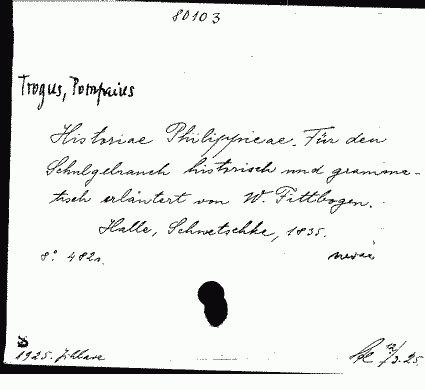 80103
Trogus, Pompeius
Historiae Philippicae. Für den
Schulgebrauch historisch und gramma-
tisch erläutert von W. Fittbogen.
Halle, Schwetschke, 1835.
8° 482s.
1925. Jihlava